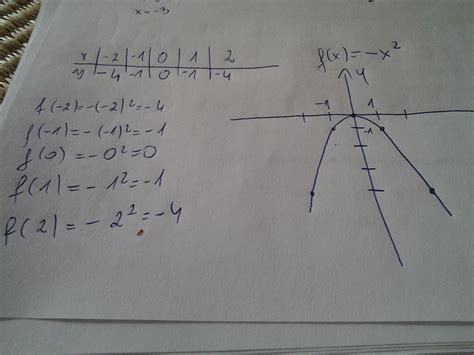 x=-3
x -2 -1 0 1 2
y -4 -1 0 -1 -4
f(-2)=-(-2)²=-4
f(-1)=-(-1)²=-1
f(0)=-0²=0
f(1)=-1²=-1
f(2)=-2²=-4
f(x)=-x²
y
-1 1
-1